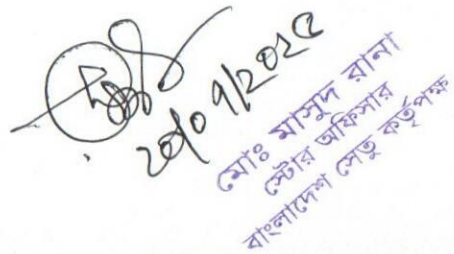 ২০/০৭/২০২৫
মোঃ মাসুদ রানা
স্টোর অফিসার
বাংলাদেশ সেতু কর্তৃপক্ষ